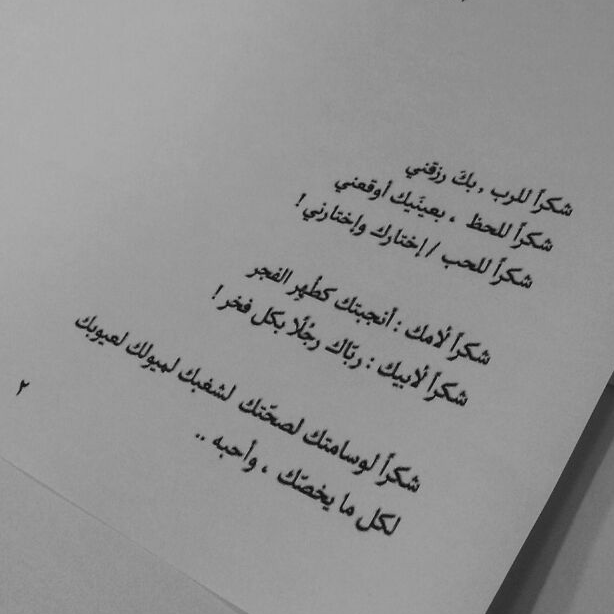 شكراً للرب , بكَ رزقني
شكراً للحظ ، بعينَيك أوقعني
شكراً للحب / إختارك وإختارني !
شكراً لأمك : أنجبتك كطُهِر الفجر
شكراً لأبيك : ربّاك رجُلًا بكل فخر !
شكراً لوسامتك لصحّتك لشغبك لميولك لعيوبك
لكل ما يخصّك ، وأحبه ..
٢